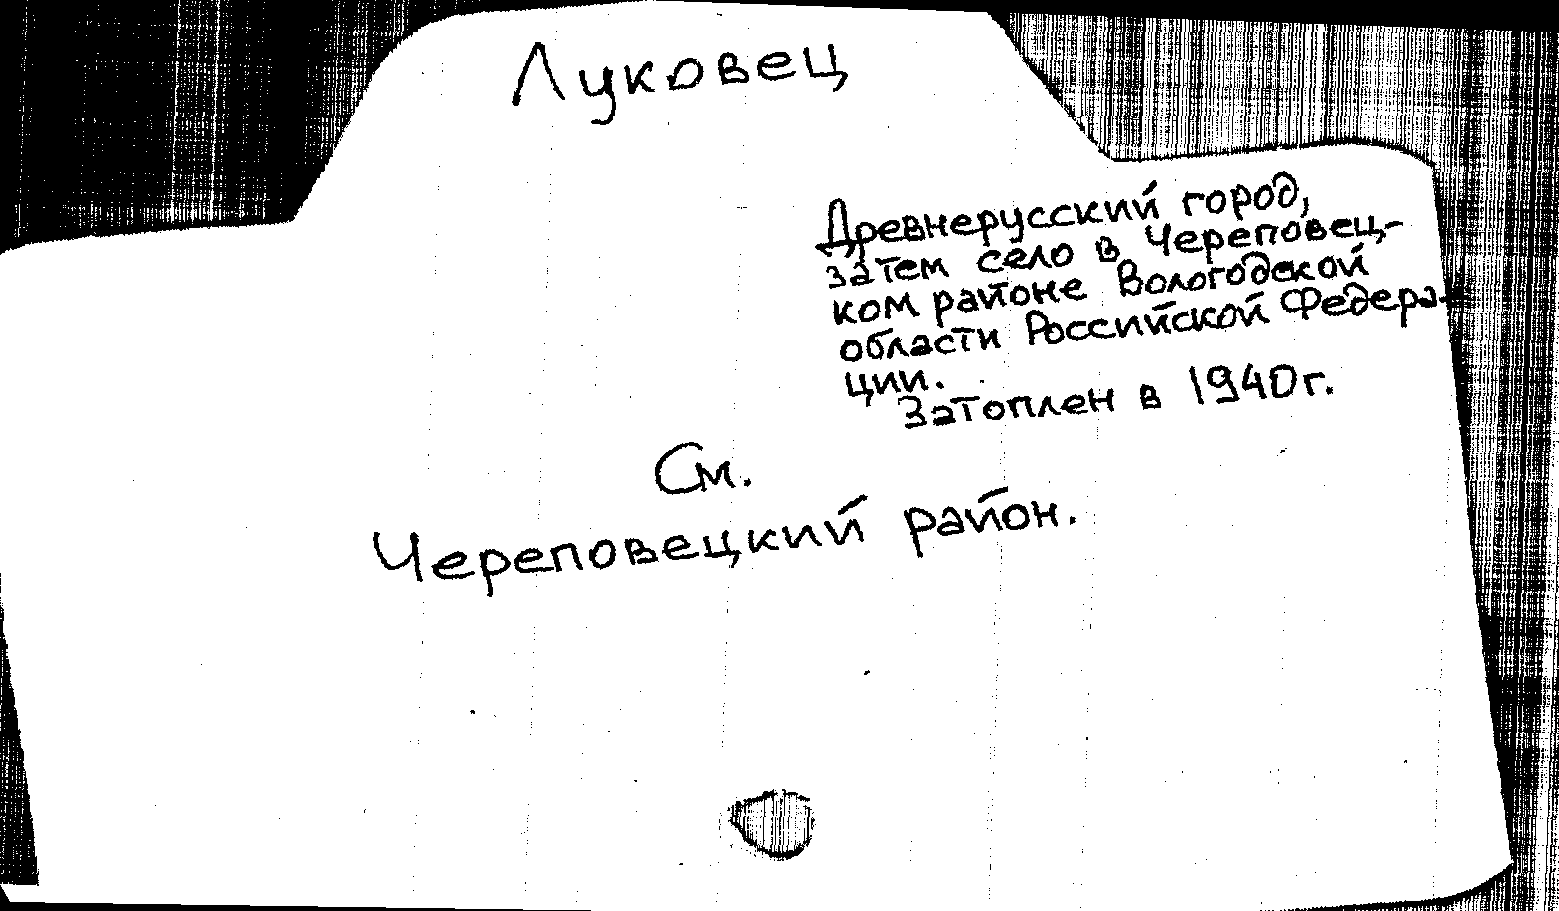 Луковец
Древнерусский город,
затем село в Череповец-
ком районе Вологодской
области Российской Федера-
ции.
Затоплен в 1940г.
См.
Череповецкий район.